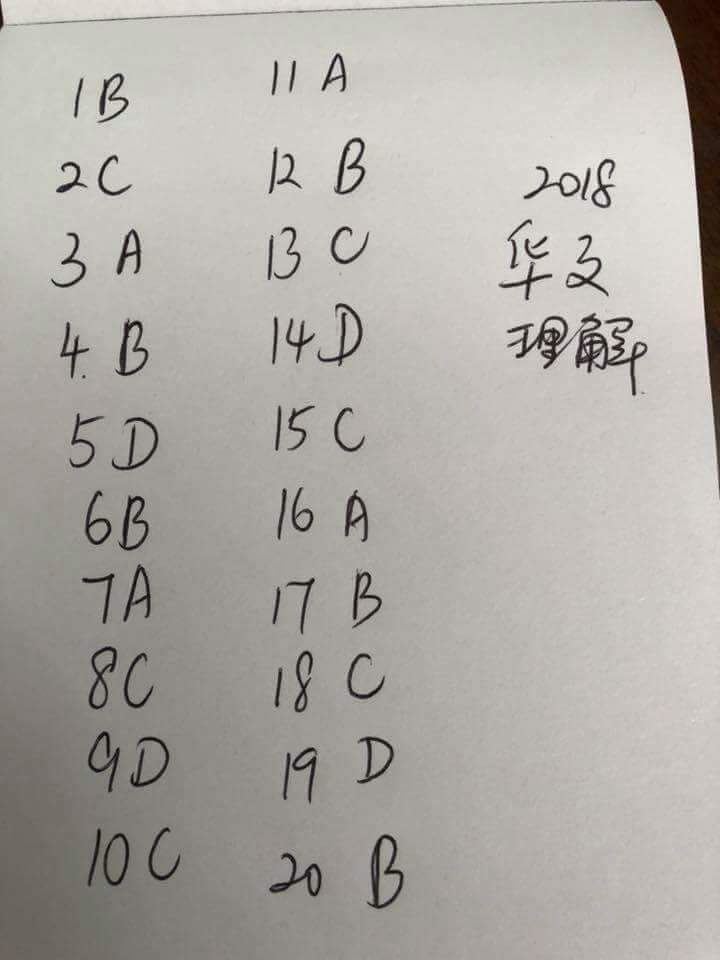 1 B
2 C
3 A
4. B
5 D
6 B
7 A
8 C
9 D
10 C
11 A
12 B
13 C
14 D
15 C
16 A
17 B
18 C
19 D
20 B
2018
华文
理解